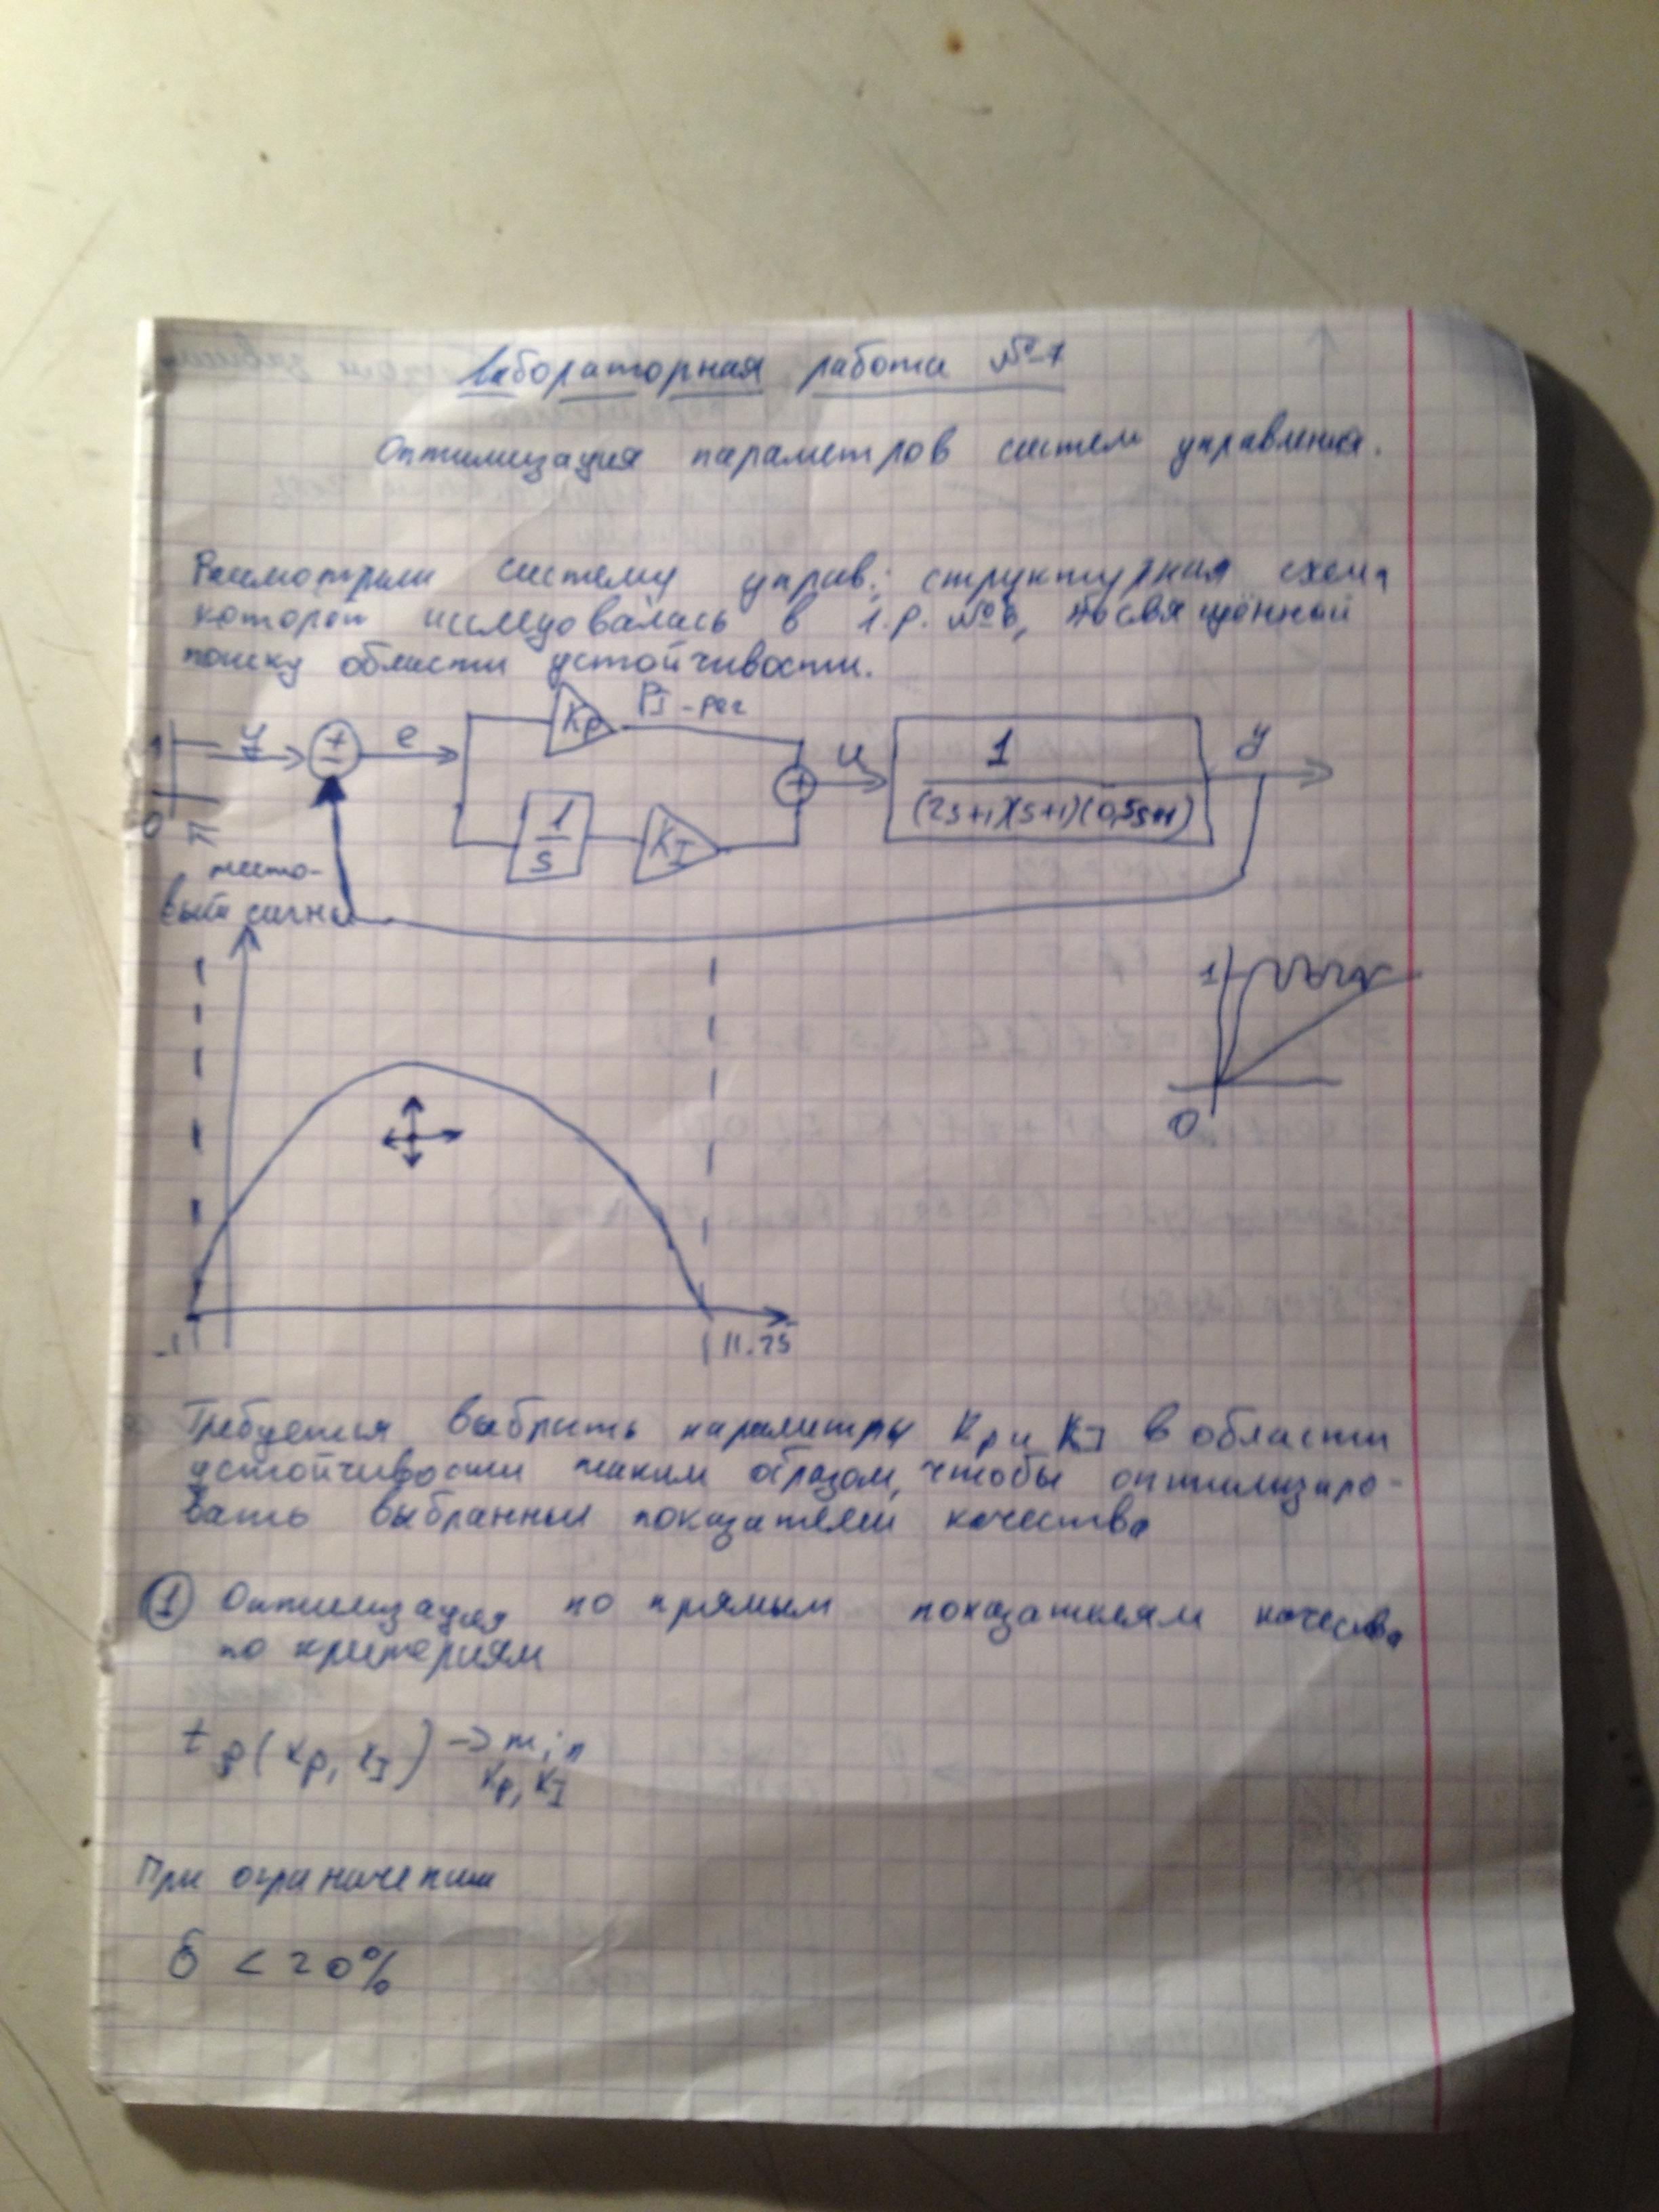 Лабораторная работа №7
Оптимизация параметров систем управления.
Рассмотрим систему управ.; структурная схема
которой исследовалась в л.р. №6, посвящённой
поиску области устойчивости.
Kp PI-рег
1 y + − e u 1 y
0 + (2s+1)(s+1)(0,5s+1)
1 KI
s
тесто-
вый сигнал
1
0
-1 11.25
Требуется выбрать параметры Kp и KI в области
устойчивости таким образом, чтобы оптимизиро-
вать выбранный показателей качества
1 Оптимизация по прямым показателям качества
по критериям
tp(Kp, KI) -> min
Kp, KI
При ограничении
δ < 20%